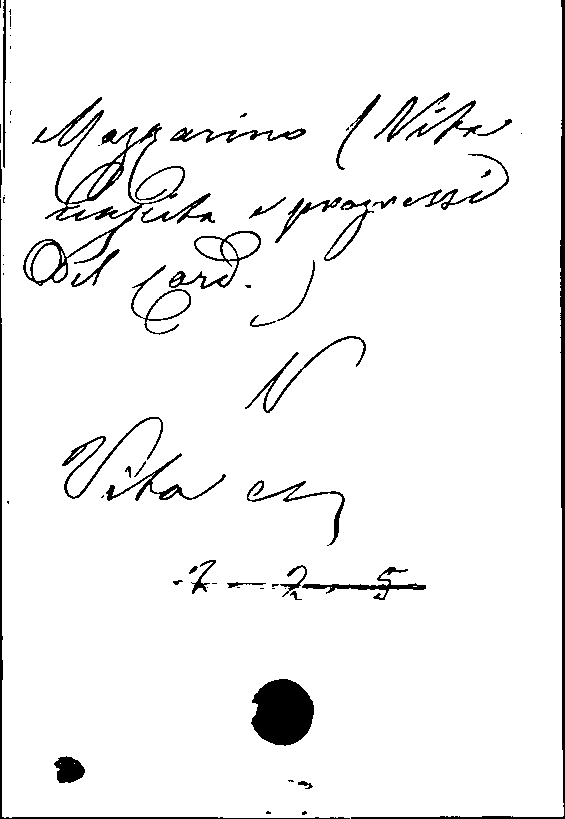 Mazzarino (Vita
nascita e progressi
del Card.)
V
Vita ec
7 - 2. 5